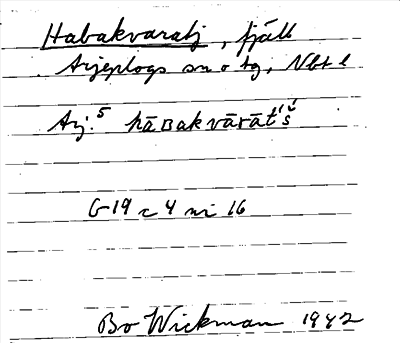 Habakvaratj, fjäll
Arjeplogs sn o tg, Nbt l
Arj.⁵ hāʙakvārāt́š́
G-19 c 4 nr 16
Bo Wickman 1942